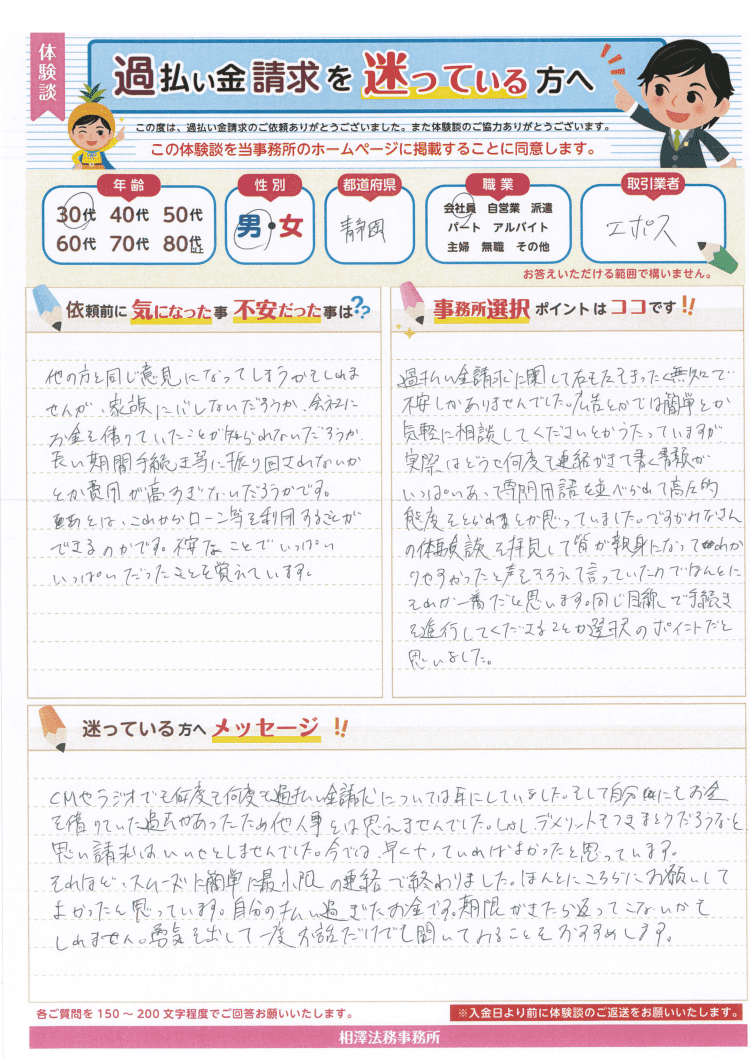 体験談
過払い金請求を迷っている方へ
この度は、過払い金請求のご依頼ありがとうございました。また体験談のご協力ありがとうございます。
この体験談を当事務所のホームページに掲載することに同意します。
年齢
30代 40代 50代
60代 70代 80代以上
性別
男・女
都道府県
静岡
職業
会社員 自営業 派遣
パート アルバイト
主婦 無職 その他
取引業者
エポス
お答えいただける範囲で構いません。
依頼前に気になった事 不安だった事は??
他の方と同じ意見になってしまうかもしれま
せんが、家族にバレないだろうか、会社に
お金を借りていたことが知られないだろうか、
長い期間手続き等に振り回されないか
とか費用が高すぎないだろうかです。
あとは、これからローン等を利用することが
できるのかです。不安なことでいっぱい
いっぱいだったことを覚えています。
事務所選択ポイントはココです!!
過払い金請求に関して右も左もまったく無知で
不安しかありませんでした。広告とかでは簡単とか
気軽に相談してくださいとかうたっていますが
実際はどうせ何度も連絡がきて書く書類が
いっぱいあって専門用語を並べられて高圧的
態度をとられるとか思っていました。ですがみなさん
の体験談を拝見して皆が親身になってわか
りやすかったと声をそろえて言っていたのでなんとに
それが一番だと思います。同じ目線で手続き
を進行してくださることが選択のポイントだと
思いました。
迷っている方へメッセージ!!
CMやラジオでも何度も何度も過払い金請求については耳にしていました。そして自分にもお金
を借りていた過去があったため他人事とは思えませんでした。しかし、デメリットもつきまとうだろうなと
思い請求はいいせとしませんでした。今では、早くやっていればよかったと思っています。
それほど、スムーズに簡単に最小限の連絡で終わりました。ほんとにこちらにお願いして
よかったと思っています。自分の払い過ぎたお金です。期限がきたら返ってこないかも
しれません。勇気を出して一度お話だけでも聞いてみることをおすすめします。
各ご質問を150～200文字程度でご回答お願いいたします。
※入金日より前に体験談のご返送をお願いいたします。
相澤法務事務所